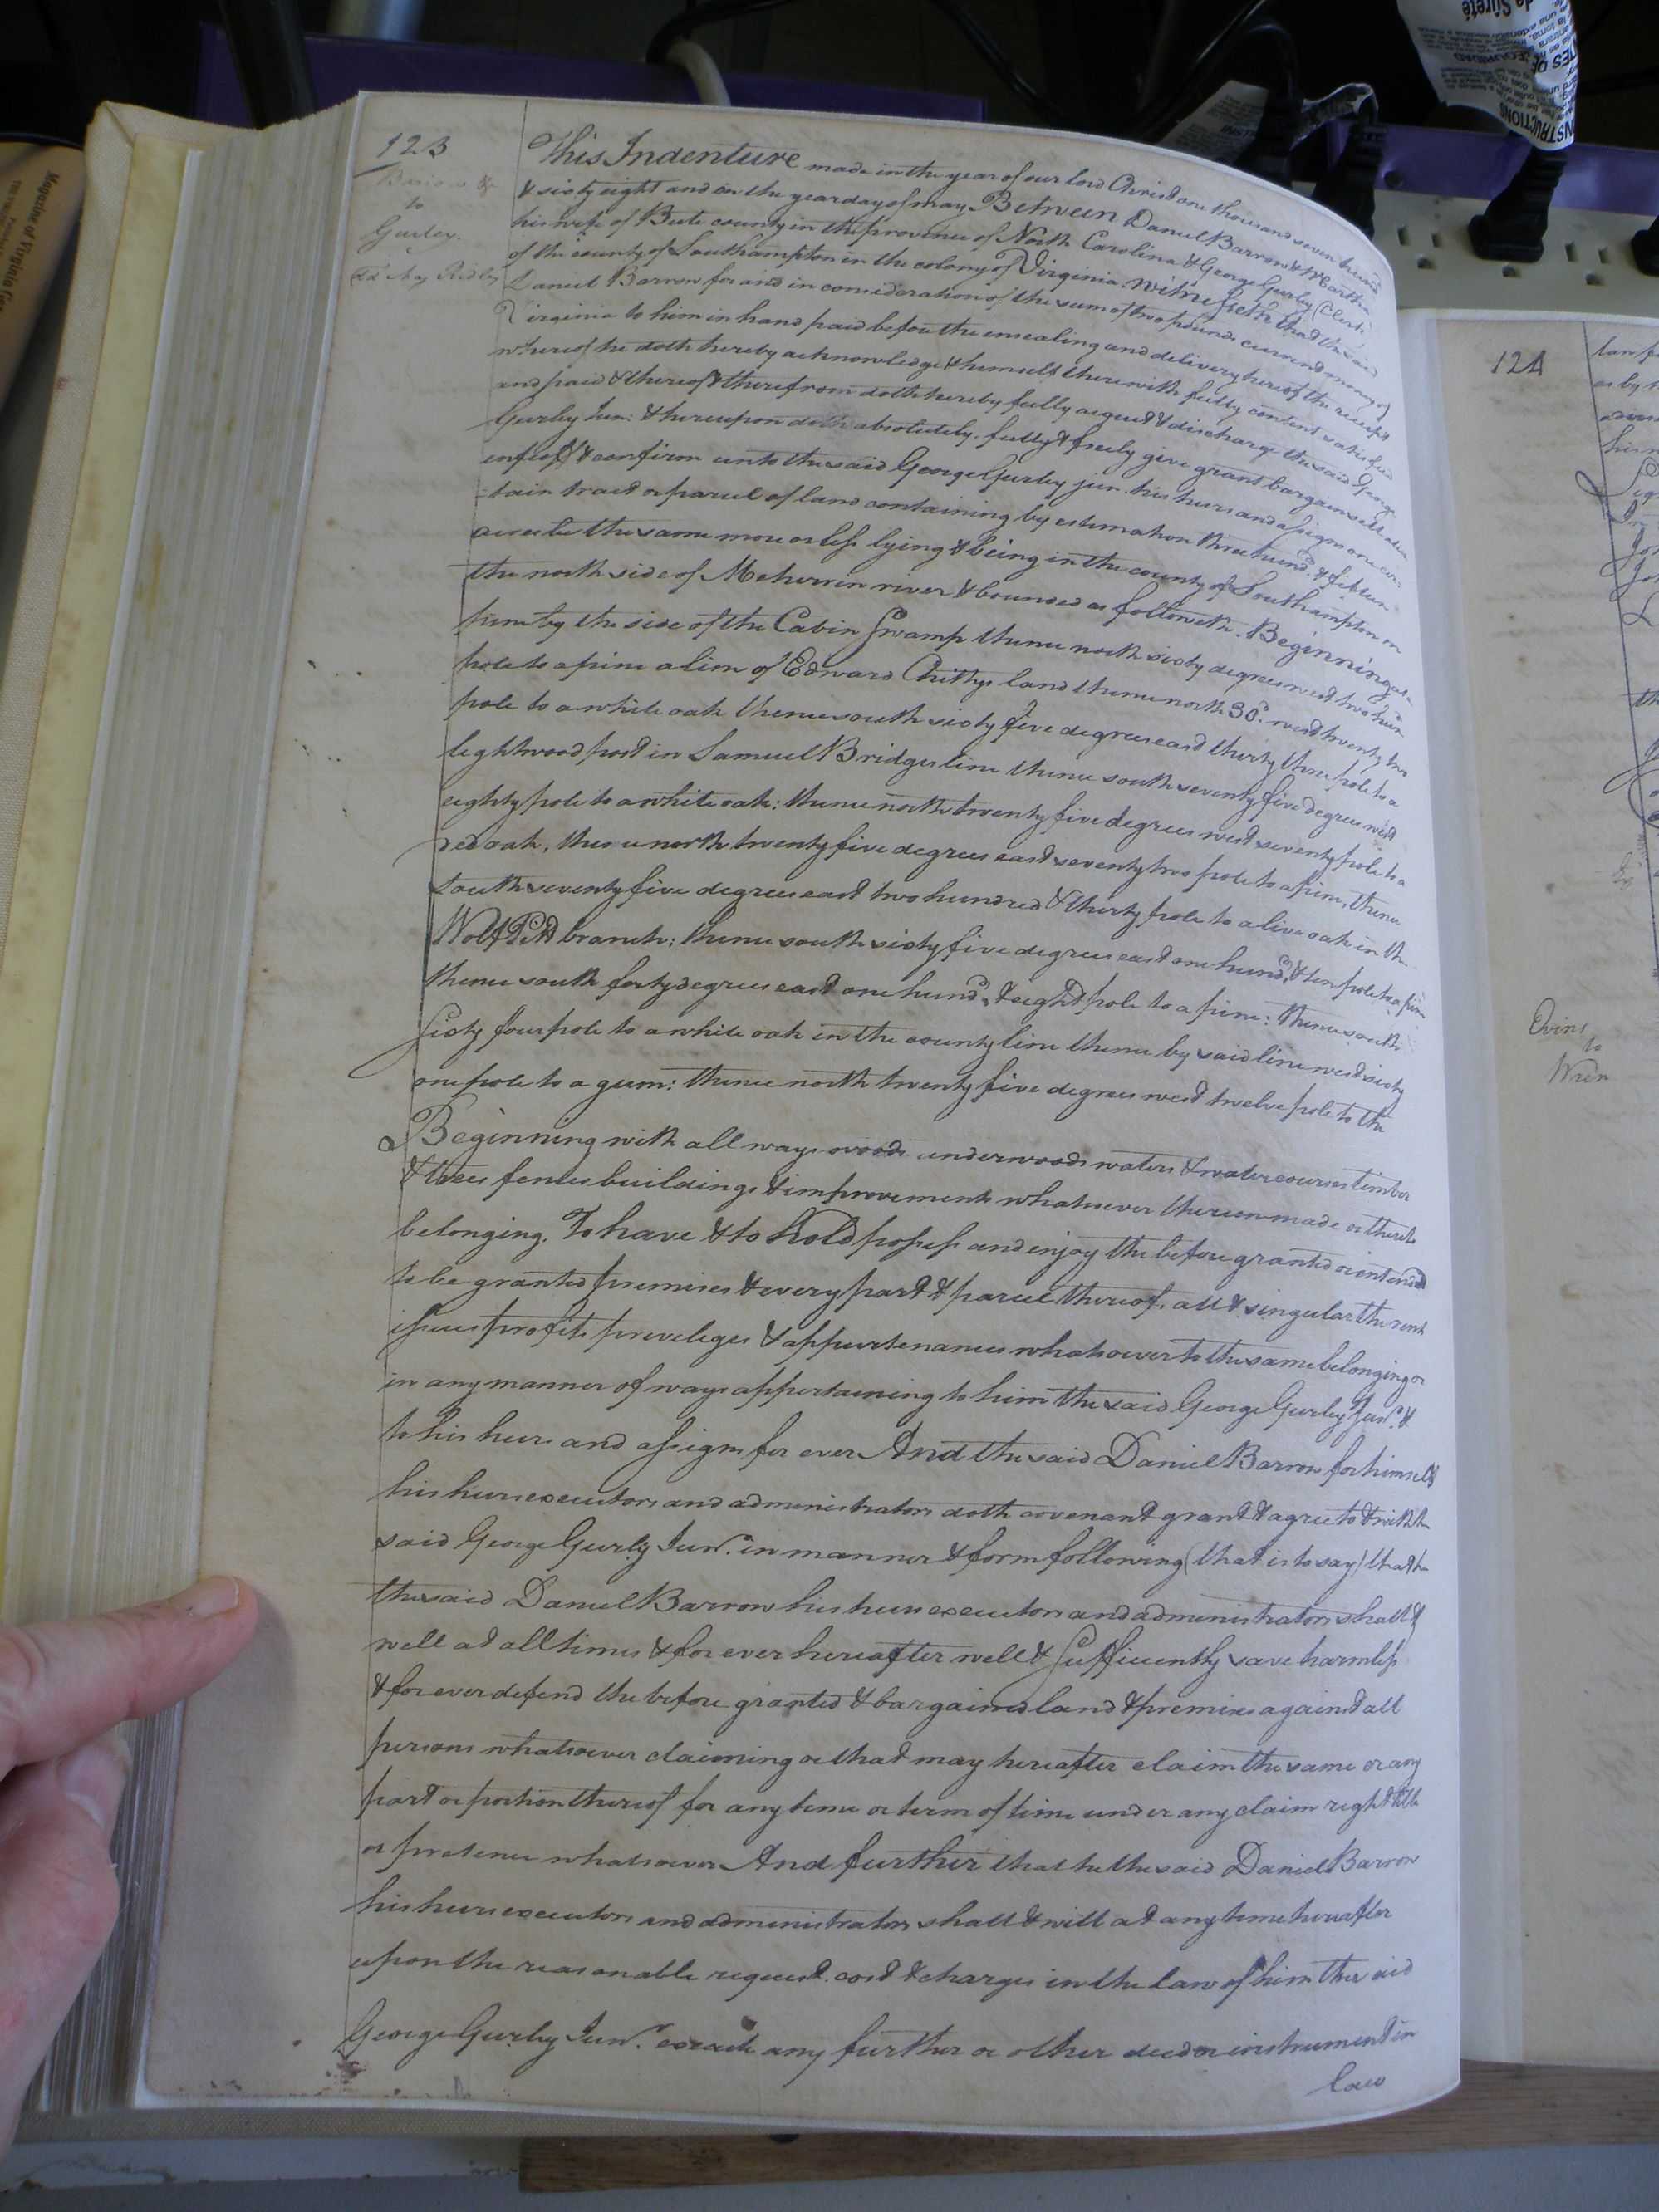 123
Barrow &c
to
Gurley
Ed May Ridley
This Indenture made in the year of our lord Christ one thousand seven hund
& sixty eight and on the year day of may Between Daniel Barrow & Martha
his wife of Bute county in the province of North Carolina & George Gurley (Clerk)
of the county of Southampton in the colony of Virginia. Witnesseth that the said
Daniel Barrow for and in consideration of the sum of two pounds current money of
Virginia to him in hand paid before the ensealing and delivery hereof the receipt
whereof he doth hereby acknowledge & himself therewith fully content satisfied
and paid & thereof & therefrom doth hereby fully acquit & discharge the said George
Gurley Jun: & hereupon doth absolutely, fully & freely give grant bargain sell alien
enfeoff & confirm unto the said George Gurley jun. his heirs and assigns one cer
=tain tract or parcel of land containing by estimation three hund. & fifteen
acres be the same more or less lying & being in the county of Southampton on
the north side of Meherrin river & bounded as followeth. Beginning at a
pine by the side of the Cabin Swamp thence north sixty degrees west two hun
pole to a pine a line of Edward Chittys land thence north 30d. west twenty two
pole to a white oak thence south sixty five degrees east thirty three pole to a
lightwood post in Samuel Bridges line thence south seventy five degrees west
eighty pole to a white oak: thence north twenty five degrees west seventy pole to a
red oak, thence north twenty five degrees east seventy two pole to a pine, thence
South seventy five degrees east two hundred & thirty pole to a live oak in the
Wolf Pitt branch; thence south sixty five degrees east one hund.d & ten pole to a pine
thence south forty degrees east one hund.d & eight pole to a pine: thence south
Sixty four pole to a white oak in the county line thence by said line west sixty
one pole to a gum: thence north twenty five degrees west twelve pole to the
Beginning with all ways woods underwoods waters & watercourses timber
& trees fences buildings & improvements whatsoever thereon made or thereto
belonging. To have & to hold possess and enjoy the before granted or intended
to be granted premises & every part & parcel thereof, all & singular the rents
issues profits priveleges & appurtenances whatsoever to the same belonging or
in any manner of ways appertaining to him the said George Gurley Junr. &
to his heirs and assigns for ever And the said Daniel Barrow for himself
his heirs executors and administrators doth covenant grant & agree to & with the
said George Gurley Junr. in manner & form following (that is to say) that he
the said Daniel Barrow his heirs executors and administrators shall &
well at all times & for ever hereafter well & Sufficiently save harmless
& for ever defend the before granted & bargained land & premises against all
persons whatsoever claiming or that may hereafter claim the same or any
part or portion thereof for any time or term of time under any claim right title
or pretence whatsoever And further that he the said Daniel Barrow
his heirs executors and administrators shall & will at any time hereafter
upon the reasonable request. cost & charges in the law of him the said
George Gurley Junr. execute any further or other deed or instrument in
law
124
Ovins
to
Wren
Magazine of Virginia
de Sûreté